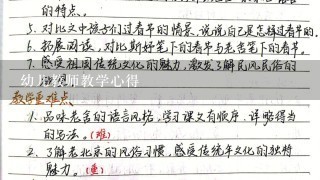 的特点。
5. 对比文中孩子们过春节的情景,说说自己是怎样过春节的。
6. 拓展阅读,对比斯好笔下的春节与老舍笔下的春节。
7. 感受祖国传统文化的魅力,激发了解民风民俗的
幼儿教师教学心得
教学重难点
1. 品味老舍的语言风格,学习课文有顺序、详略得当
的写法。(难)
2. 了解老北京的风俗习惯,感受传统年文化的独特
魅力。(重)